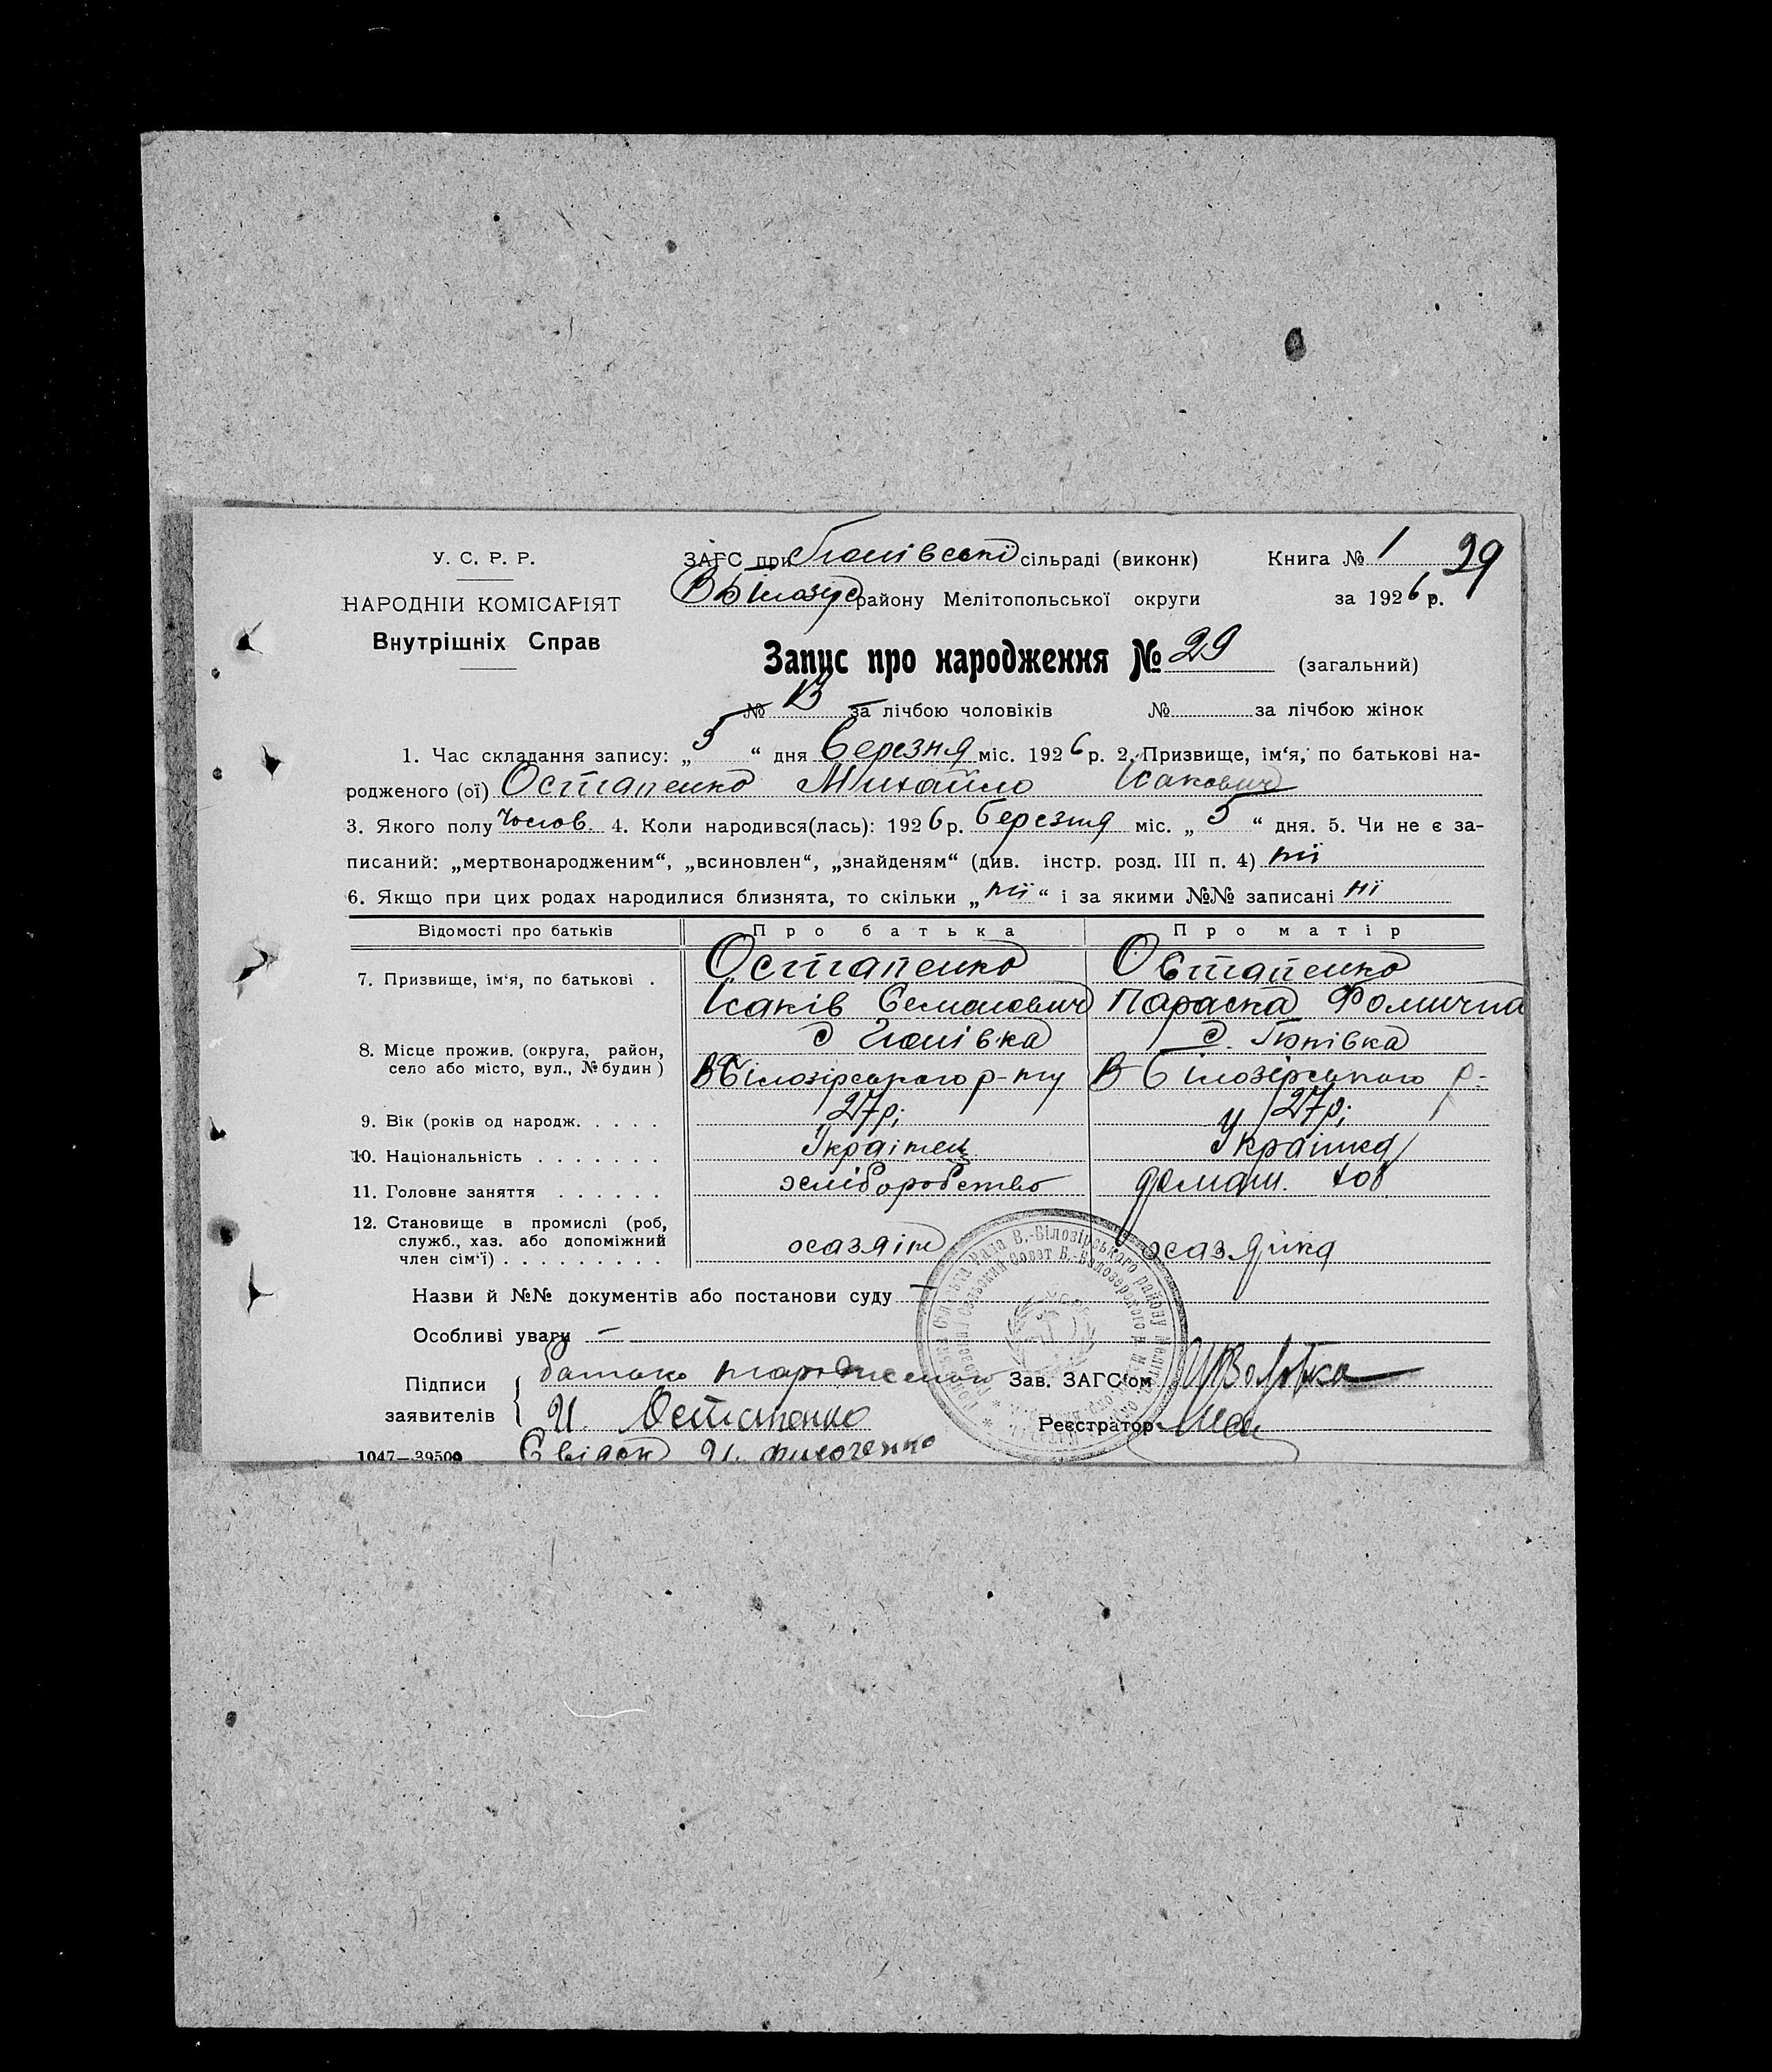 У. С. Р. Р.
НАРОДНІЙ КОМІСАРІЯТ
Внутрішніх Справ
ЗАГС при Гюнівські сільраді (виконк)
В Білозір району Мелітопольської округи
Книга № 1 29
за 1926 р.
Запис про народження № 29 (загальний)
№ 13 за лічбою чоловіків № за лічбою жінок
1. Час складання запису: „ 5 “ дня березня міс. 1926 р. 2. Призвище, ім‘я, по батькові на-
родженого (ої) Остапенко Михайло Ісакович
3. Якого полу Чолов. 4. Коли народився(лась): 1926 р. березня міс. „ 5 “ дня. 5. Чи не є за-
писаний: „мертвонародженим“, „всиновлен“, „знайденям“ (див. інстр. розд. III п. 4) ні
6. Якщо при цих родах народилися близнята, то скільки „ ні “ і за якими №№ записані ні
Відомості про батьків Про батька Про матір
7. Призвище, ім‘я, по батькові . Остапенко Остапенко
Ісаків Семенович Параска Фомична
8. Місце прожив. (округа, район, с Гюнівка с. Гюнівка
село або місто, вул., № будин) В Білозірського р-ну В Білозірського р-
9. Вік (років од народж. . . . . 27 р; 27 р;
10. Національність . . . . . . . Українец Українка
11. Головне заняття . . . . . . хліборобство домаш. хоз
12. Становище в промислі (роб,
служб., хаз. або допоміжний хазяін хазяйка
член сім‘ї) . . . . . . . . .
Назви й №№ документів або постанови суду —
Особливі уваги —
Підписи
заявителів
батько народженого
И. Остапенко
Зав. ЗАГС‘ом
Реєстратор
1047—39500 Свідок И.